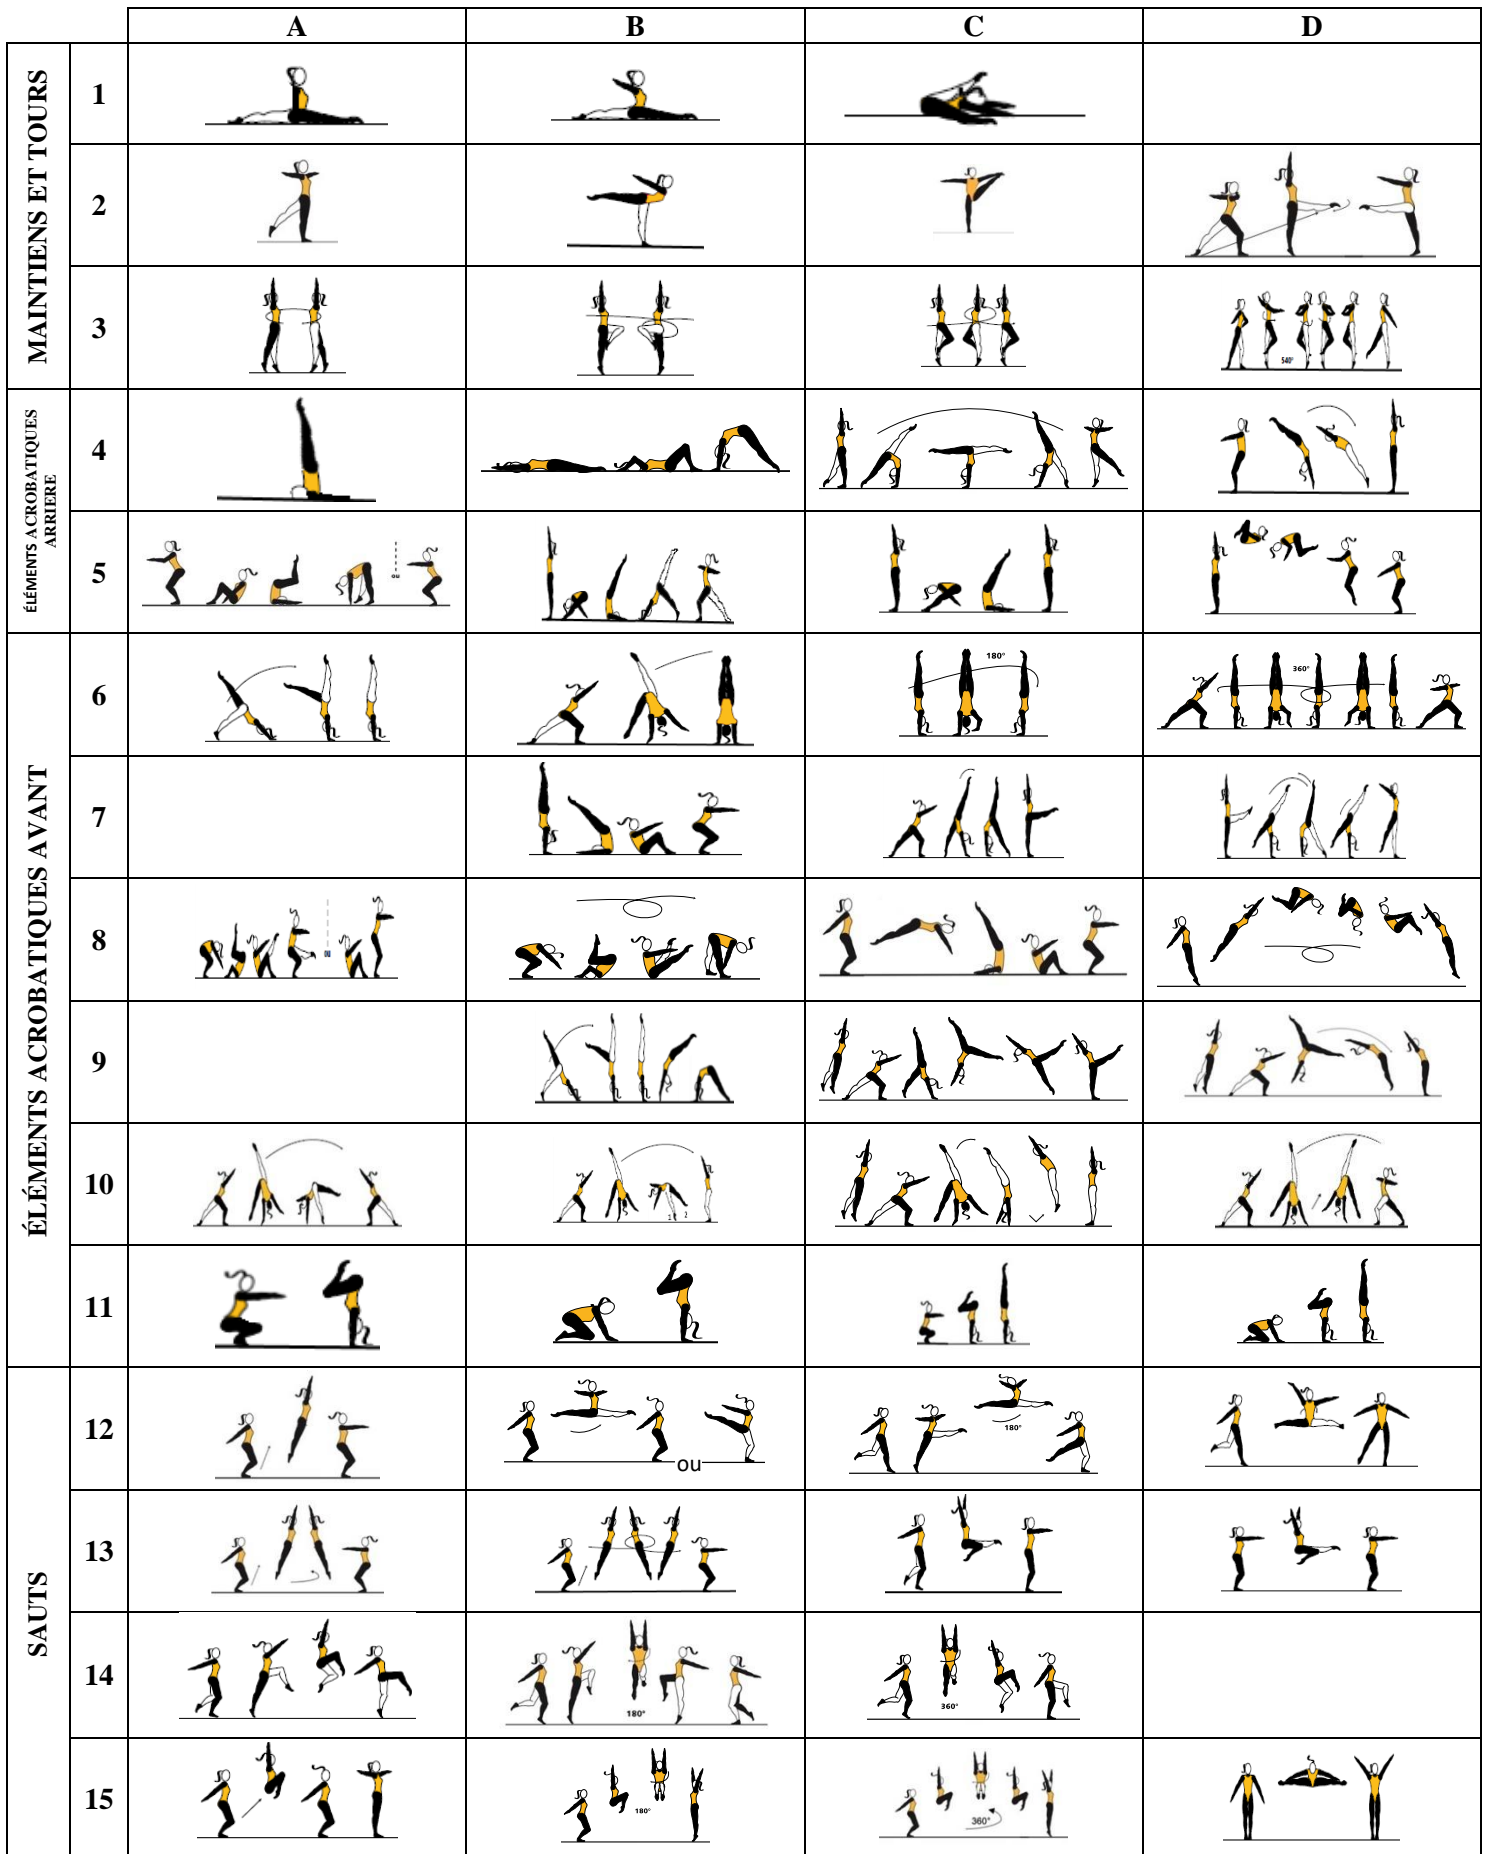 A B C D
MAINTIENS ET TOURS
1
2
3
540°
ÉLÉMENTS ACROBATIQUES
ARRIERE
4
5
ou
ÉLÉMENTS ACROBATIQUES AVANT
6
180°
360°
7
8
9
10
11
SAUTS
12
ou
180°
13
14
180°
360°
15
180°
360°